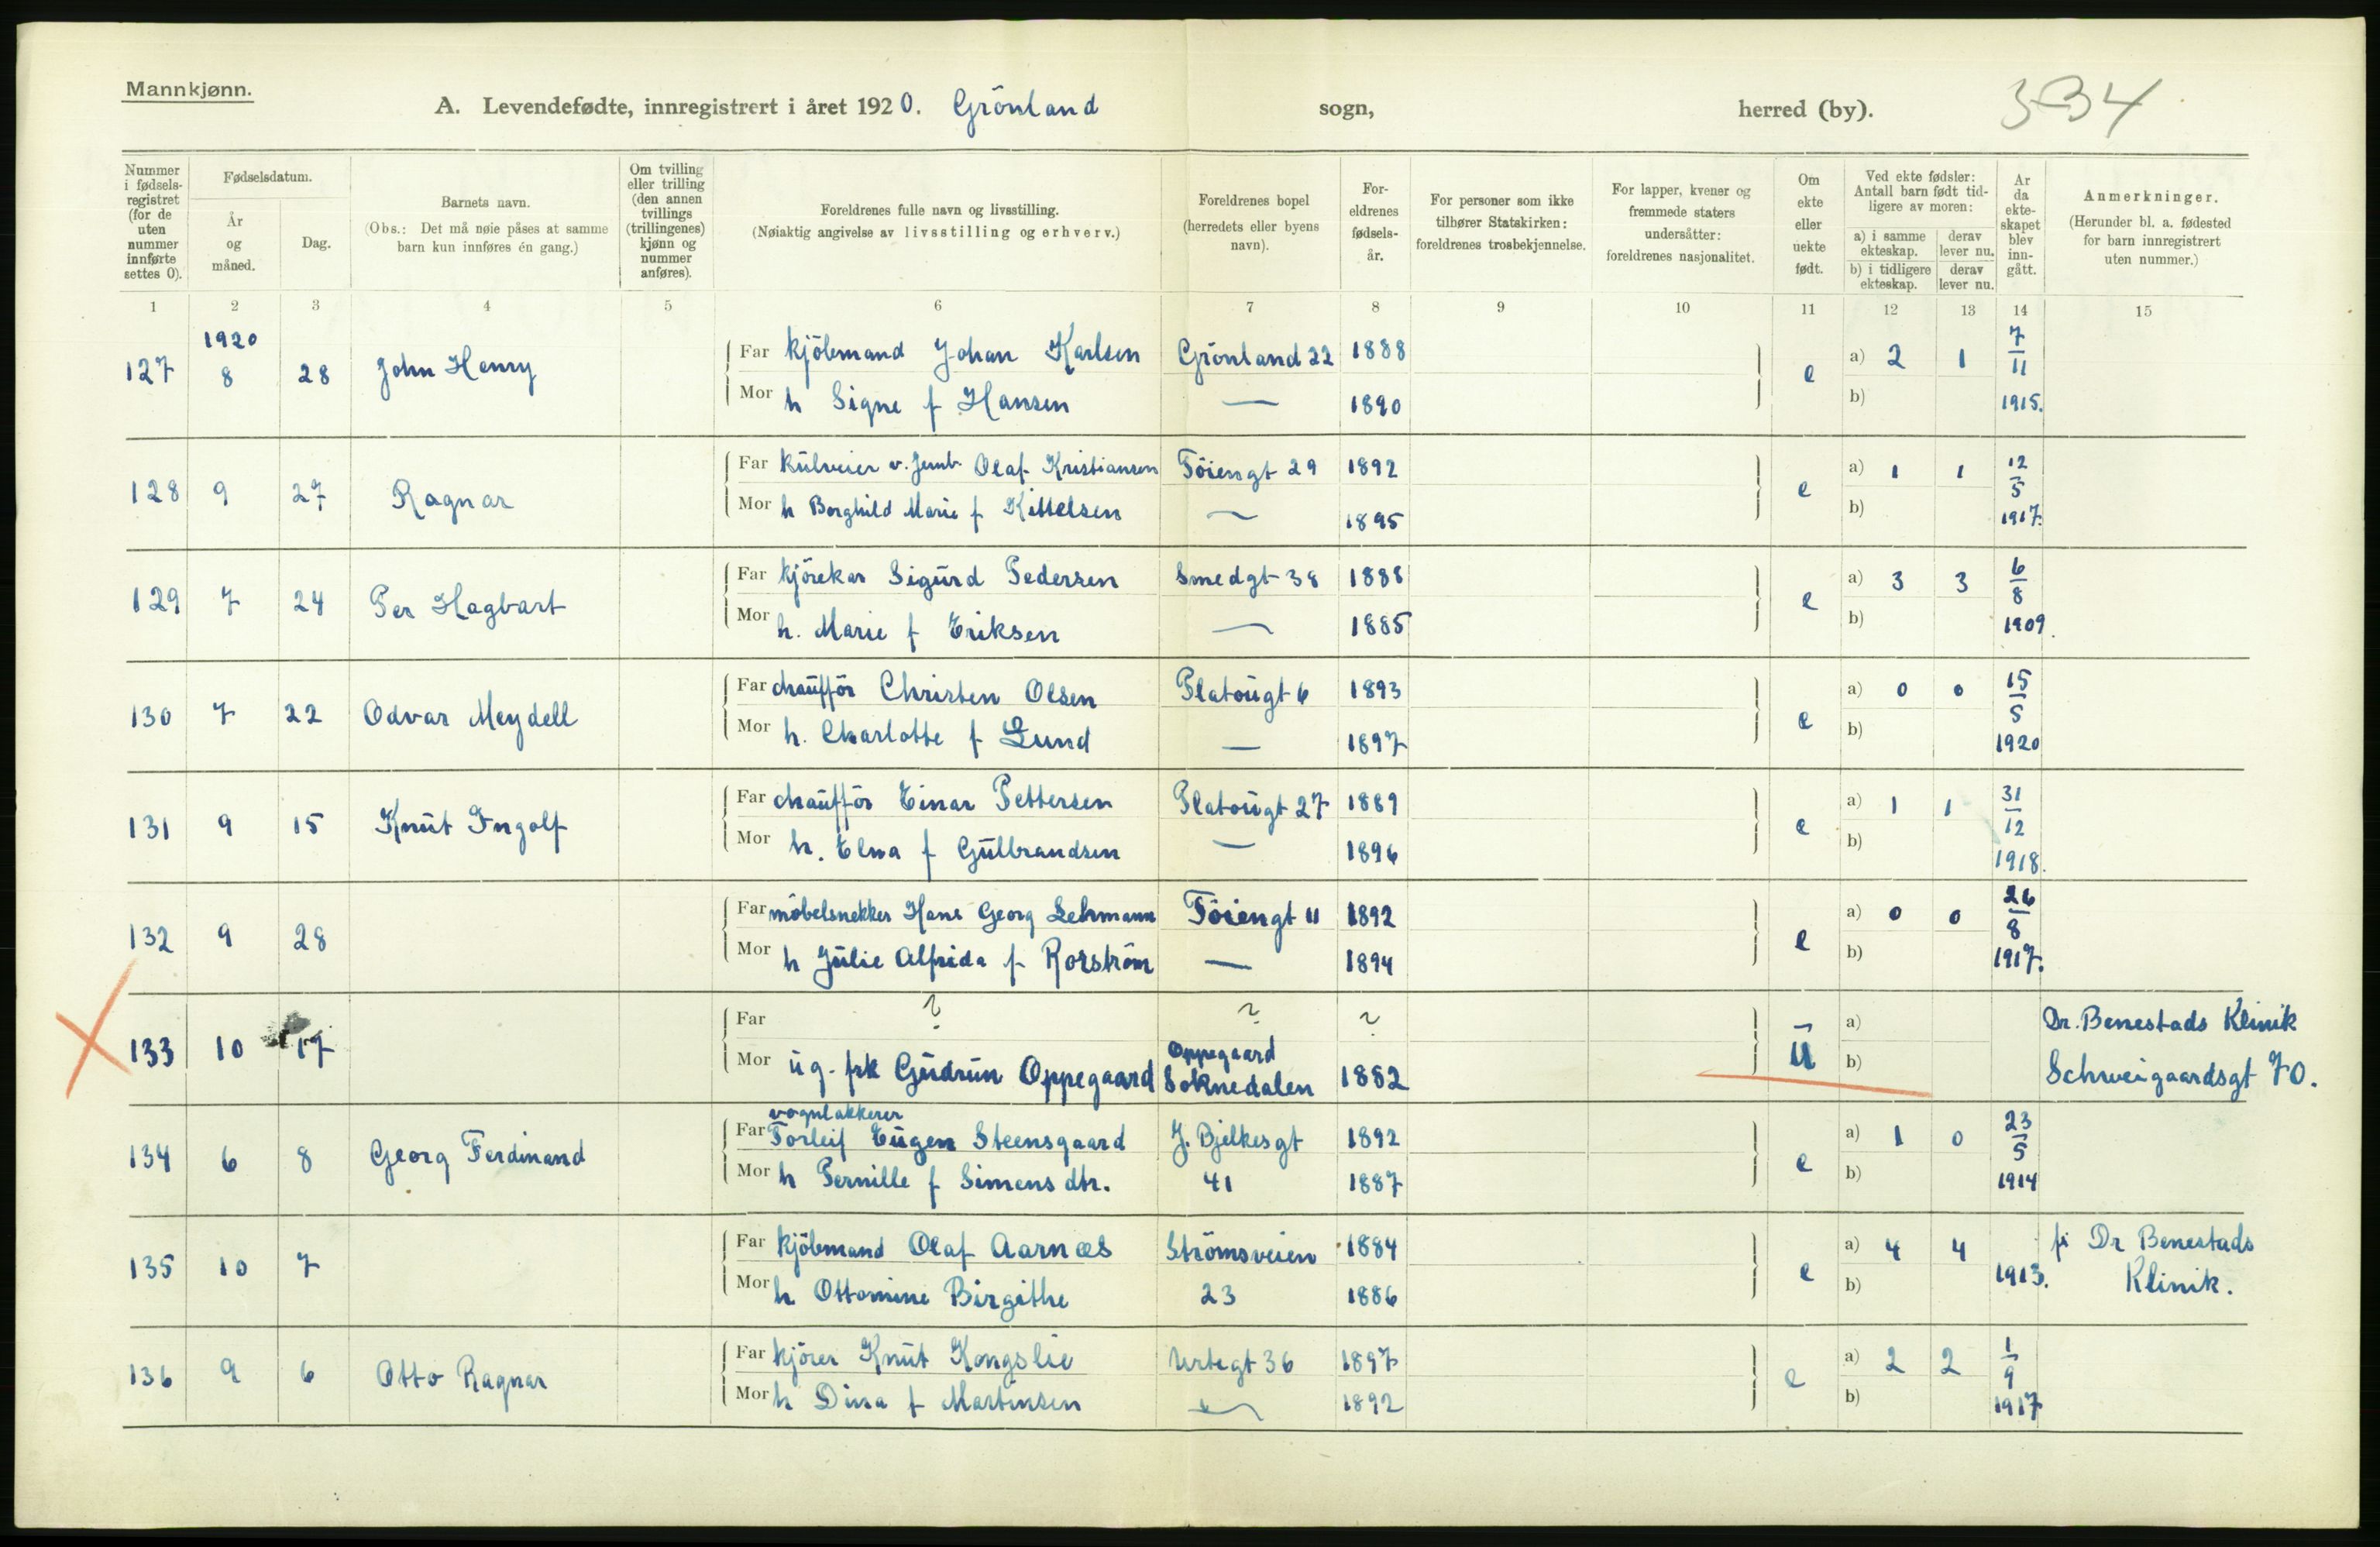 Mannkjønn.
A. Levendefødte, innregistrert i året 1920. Grönland sogn, herred (by). 334
Nummer i fødsels- registret (for de uten nummer innførte settes 0).
Fødselsdatum.
År og måned.
Dag.
Barnets navn.
(Obs.: Det må nøie påses at samme barn kun innføres én gang.)
Om tvilling eller trilling (den annen tvillings (trillingenes) kjønn og nummer anføres).
Foreldrenes fulle navn og livsstilling.
(Nøiaktig angivelse av livsstilling og erhverv.)
Foreldrenes bopel
(herredets eller byens navn).
For- eldrenes fødsels- år.
For personer som ikke tilhører Statskirken: foreldrenes trosbekjennelse.
For lapper, kvener og fremmede staters undersåtter: foreldrenes nasjonalitet.
Om ekte eller uekte født.
Ved ekte fødsler: Antall barn født tid- ligere av moren:
a) i samme ekteskap. derav lever nu.
b) i tidligere ekteskap. derav lever nu.
År da ekte- skapet blev inn- gått.
Anmerkninger.
(Herunder bl. a. fødested for barn innregistrert uten nummer.)
1 2 3 4 5 6 7 8 9 10 11 12 13 14 15
1920
127 8 28 John Henry Far kjöbmand Johan Karlsen Grönland 22 1888 e a) 2 1 7/11
Mor h Signe f Hansen — 1890 b) 1915.
128 9 27 Ragnar Far Olaf Kristiansen Töiengt 29 1892 e a) 1 1 12/5
Mor h Borghild Marie f Kittelsen — 1895 b) 1917.
129 7 24 Per Hagbart Far kjörekar Sigurd Pedersen Smedgt 38 1888 e a) 3 3 6/8
Mor h. Marie f Eriksen — 1885 b) 1909.
130 7 22 Odvar Meydell Far chaufför Christen Olsen Platougt 6 1893 e a) 0 0 15/5
Mor h. Charlotte f Lund — 1897 b) 1920
131 9 15 Knut Ingolf Far chaufför Einar Pettersen Platougt 27 1889 e a) 1 1 31/12
Mor h. Elna f Gulbrandsen — 1896 b) 1918.
132 9 28 Far möbelsnekker Hans Georg Lehmann Töiengt 11 1892 e a) 0 0 26/8
Mor h Julie Alfrida f Rorström — 1894 b) 1917.
133 10 17 Far ? ? ? u a) Dr. Benestads Klinik
Mor ug. frk Gudrun Oppegaard Oppegaard Soknedalen 1882 b) Schweigaardsgt 70.
vognlakkerer
134 6 8 Georg Ferdinand Far Torleif Eugen Steensgaard J. Bjelkesgt 1892 e a) 1 0 23/5
Mor h Pernille f Simensdtr. 41 1887 b) 1914
135 10 7 Far kjöbmand Olaf Aarnæs Strömsveien 1884 e a) 4 4 Dr Benestads
Mor h Ottomine Birgithe 23 1886 b) 1913. Klinik.
136 9 6 Otto Ragnar Far kjörer Knut Kongslie Urtegt 36 1897 e a) 2 2 1/9
Mor h Dina f Martinsen — 1892 b) 1917